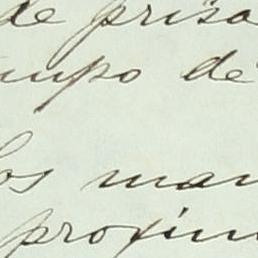 de prisa
empo de
los man
proxim